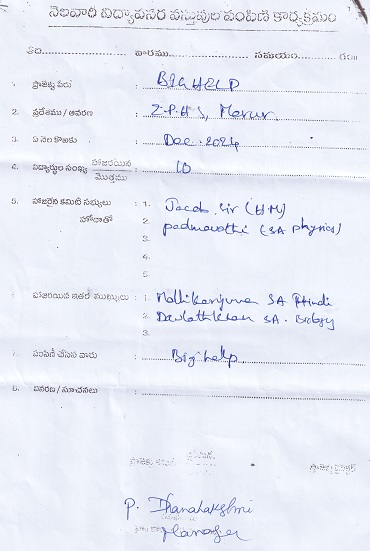 నెలవారీ విద్యావసర వస్తువుల పంపిణీ కార్యక్రమం
తేది........................ వారము........................ సమయం............ గం॥
1. ప్రాజెక్టు పేరు : BIGHELP
2. ప్రదేశము / ఆవరణ : Z.P.H.S, Merur.
3. ఏ నెల కొరకు : Dec. 2024
4. విద్యార్థుల సంఖ్య హాజరయిన / మొత్తము : 10
5. హాజరైన కమిటీ సభ్యులు : 1. Jacob. Sir (HM)
హోదాతో 2. padmavathi (SA physics)
3.
4.
5.
6. హాజరయిన ఇతర ముఖ్యులు : 1. Mallikarjuna SA Hindi
2. Daulathkhan SA. Biology
3.
7. పంపిణీ చేసిన వారు : Bighelp
8. వివరణ / సూచనలు :
P. Dhanalakshmi
Manager